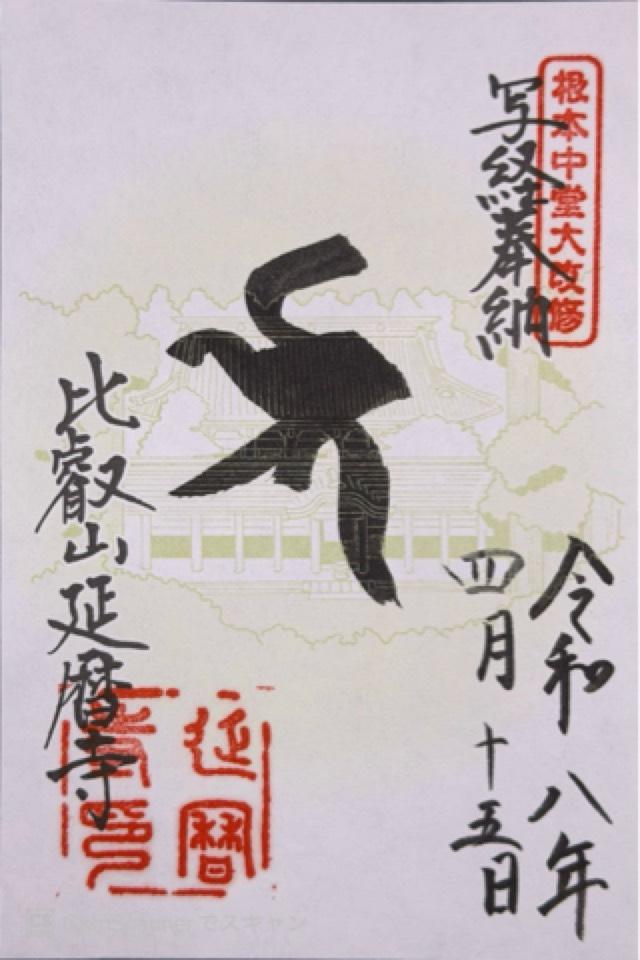 根本中堂大改修
写経奉納
令和八年
四月十五日
比叡山延暦寺
延暦
寺印
でスキャン